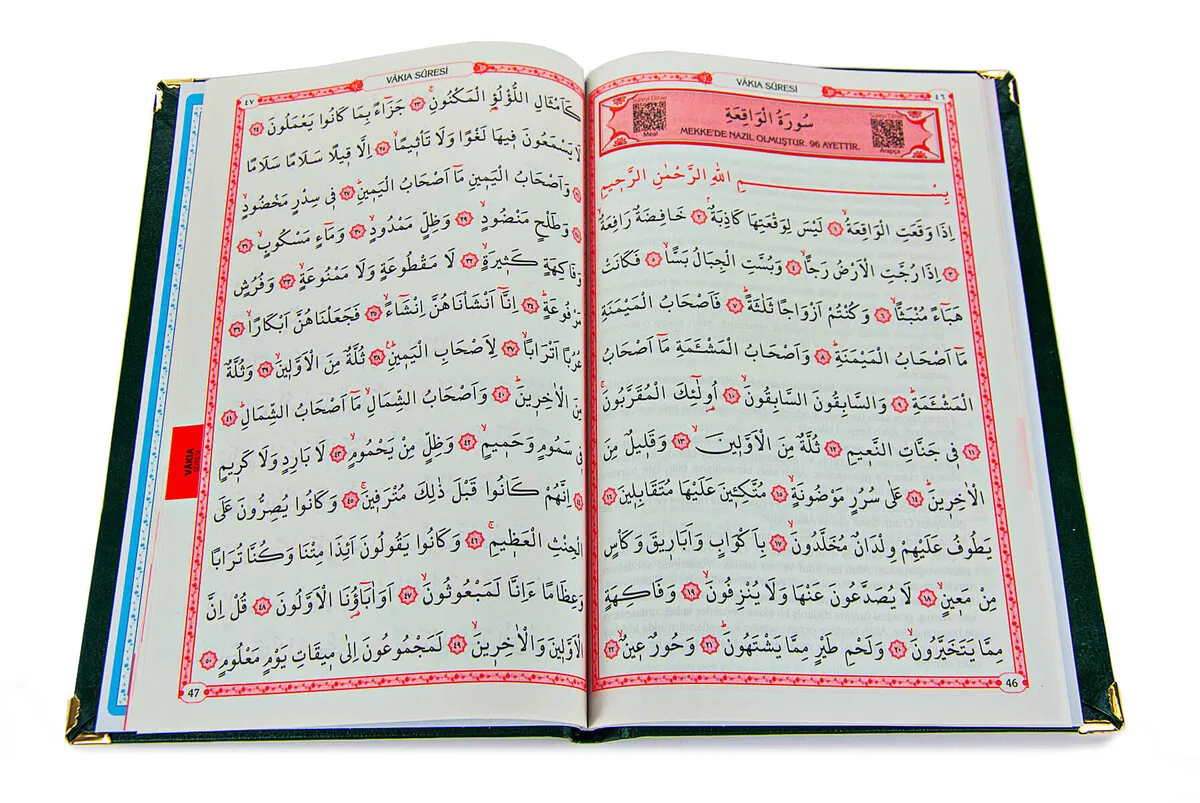 VÂKIA SÛRESİ
٤٦
Sureyi Dinle
Meal
سُورَةُ الْوَاقِعَةِ
MEKKE'DE NAZİL OLMUŞTUR. 96 AYETTİR.
Sureyi Dinle
Arapça
بِسْمِ اللهِ الرَّحْمٰنِ الرَّحٖيمِ
اِذَا وَقَعَتِ الْوَاقِعَةُۙ ﴿١﴾ لَيْسَ لِوَقْعَتِهَا كَاذِبَةٌۢ ﴿٢﴾ خَافِضَةٌ رَافِعَةٌۙ
﴿٣﴾ اِذَا رُجَّتِ الْاَرْضُ رَجًّاۙ ﴿٤﴾ وَبُسَّتِ الْجِبَالُ بَسًّاۙ ﴿٥﴾ فَكَانَتْ
هَبَٓاءً مُنْبَثًّاۙ ﴿٦﴾ وَكُنْتُمْ اَزْوَاجًا ثَلٰثَةًؕ ﴿٧﴾ فَاَصْحَابُ الْمَيْمَنَةِ
مَٓا اَصْحَابُ الْمَيْمَنَةِؕ ﴿٨﴾ وَاَصْحَابُ الْمَشْـَٔمَةِ مَٓا اَصْحَابُ
الْمَشْـَٔمَةِؕ ﴿٩﴾ وَالسَّابِقُونَ السَّابِقُونَۙ ﴿١٠﴾ اُولٰٓئِكَ الْمُقَرَّبُونَۚ
﴿١١﴾ فٖي جَنَّاتِ النَّعٖيمِ ﴿١٢﴾ ثُلَّةٌ مِنَ الْاَوَّلٖينَۙ ﴿١٣﴾ وَقَلٖيلٌ مِنَ
الْاٰخِرٖينَؕ ﴿١٤﴾ عَلٰى سُرُرٍ مَوْضُونَةٍۙ ﴿١٥﴾ مُتَّكِـٖٔينَ عَلَيْهَا مُتَقَابِلٖينَ ﴿١٦﴾
يَطُوفُ عَلَيْهِمْ وِلْدَانٌ مُخَلَّدُونَۙ ﴿١٧﴾ بِاَكْوَابٍ وَاَبَارٖيقَ وَكَاْسٍ
مِنْ مَعٖينٍۙ ﴿١٨﴾ لَا يُصَدَّعُونَ عَنْهَا وَلَا يُنْزِفُونَۙ ﴿١٩﴾ وَفَاكِهَةٍ
مِمَّا يَتَخَيَّرُونَۙ ﴿٢٠﴾ وَلَحْمِ طَيْرٍ مِمَّا يَشْتَهُونَؕ ﴿٢١﴾ وَحُورٌ عٖينٌۙ ﴿٢٢﴾
46
VÂKIA SÛRESİ
٤٧
كَاَمْثَالِ اللُّؤْلُؤِ۬ الْمَكْنُونِۚ ﴿٢٣﴾ جَزَٓاءً بِمَا كَانُوا يَعْمَلُونَ ﴿٢٤﴾
لَا يَسْمَعُونَ فٖيهَا لَغْوًا وَلَا تَاْثٖيمًاۙ ﴿٢٥﴾ اِلَّا قٖيلًا سَلَامًا سَلَامًا
﴿٢٦﴾ وَاَصْحَابُ الْيَمٖينِ مَٓا اَصْحَابُ الْيَمٖينِؕ ﴿٢٧﴾ فٖي سِدْرٍ مَخْضُودٍۙ
﴿٢٨﴾ وَطَلْحٍ مَنْضُودٍۙ ﴿٢٩﴾ وَظِلٍّ مَمْدُودٍۙ ﴿٣٠﴾ وَمَٓاءٍ مَسْكُوبٍۙ ﴿٣١﴾
وَفَاكِهَةٍ كَثٖيرَةٍۙ ﴿٣٢﴾ لَا مَقْطُوعَةٍ وَلَا مَمْنُوعَةٍۙ ﴿٣٣﴾ وَفُرُشٍ
مَرْفُوعَةٍؕ ﴿٣٤﴾ اِنَّٓا اَنْشَاْنَاهُنَّ اِنْشَٓاءًۙ ﴿٣٥﴾ فَجَعَلْنَاهُنَّ اَبْكَارًاۙ ﴿٣٦﴾
عُرُبًا اَتْرَابًاۙ ﴿٣٧﴾ لِاَصْحَابِ الْيَمٖينِؕ ﴿٣٨﴾ ثُلَّةٌ مِنَ الْاَوَّلٖينَۙ ﴿٣٩﴾ وَثُلَّةٌ
مِنَ الْاٰخِرٖينَؕ ﴿٤٠﴾ وَاَصْحَابُ الشِّمَالِۙ مَٓا اَصْحَابُ الشِّمَالِؕ ﴿٤١﴾
فٖي سَمُومٍ وَحَمٖيمٍۙ ﴿٤٢﴾ وَظِلٍّ مِنْ يَحْمُومٍۙ ﴿٤٣﴾ لَا بَارِدٍ وَلَا كَرٖيمٍ
﴿٤٤﴾ اِنَّهُمْ كَانُوا قَبْلَ ذٰلِكَ مُتْرَفٖينَۚ ﴿٤٥﴾ وَكَانُوا يُصِرُّونَ عَلَى
الْحِنْثِ الْعَظٖيمِۚ ﴿٤٦﴾ وَكَانُوا يَقُولُونَ اَئِذَا مِتْنَا وَكُنَّا تُرَابًا
وَعِظَامًا ءَاِنَّا لَمَبْعُوثُونَۙ ﴿٤٧﴾ اَوَاٰبَٓاؤُ۬نَا الْاَوَّلُونَ ﴿٤٨﴾ قُلْ اِنَّ
الْاَوَّلٖينَ وَالْاٰخِرٖينَۙ ﴿٤٩﴾ لَمَجْمُوعُونَ اِلٰى مٖيقَاتِ يَوْمٍ مَعْلُومٍ ﴿٥٠﴾
47
VÂKIA